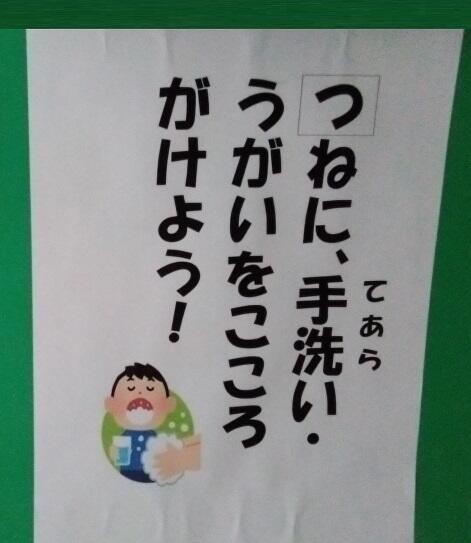 つねに、手洗い・
てあら
うがいをこころ
がけよう！